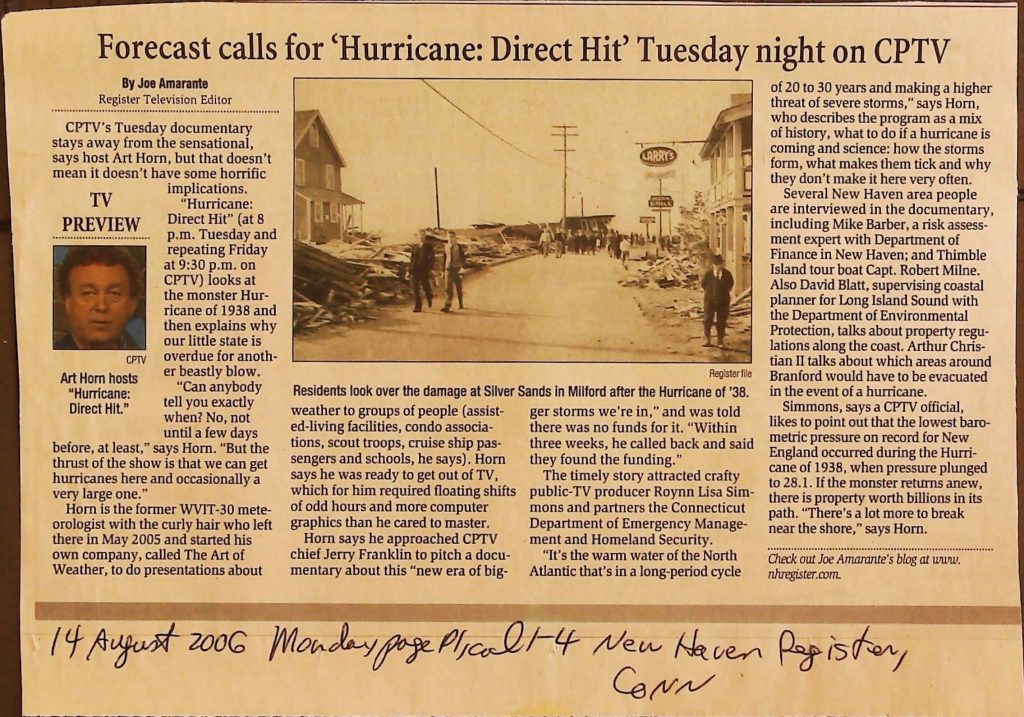 Forecast calls for ‘Hurricane: Direct Hit’ Tuesday night on CPTV
By Joe Amarante
Register Television Editor
CPTV's Tuesday documentary
stays away from the sensational,
says host Art Horn, but that doesn't
mean it doesn't have some horrific
implications.
TV
PREVIEW
CPTV
Art Horn hosts
“Hurricane:
Direct Hit.”
“Hurricane:
Direct Hit” (at 8
p.m. Tuesday and
repeating Friday
at 9:30 p.m. on
CPTV) looks at
the monster Hur-
ricane of 1938 and
then explains why
our little state is
overdue for anoth-
er beastly blow.
“Can anybody
tell you exactly
when? No, not
until a few days
before, at least,” says Horn. “But the
thrust of the show is that we can get
hurricanes here and occasionally a
very large one.”
Horn is the former WVIT-30 mete-
orologist with the curly hair who left
there in May 2005 and started his
own company, called The Art of
Weather, to do presentations about
LARRY'S
GRILL
Register file
Residents look over the damage at Silver Sands in Milford after the Hurricane of '38.
weather to groups of people (assist-
ed-living facilities, condo associa-
tions, scout troops, cruise ship pas-
sengers and schools, he says). Horn
says he was ready to get out of TV,
which for him required floating shifts
of odd hours and more computer
graphics than he cared to master.
Horn says he approached CPTV
chief Jerry Franklin to pitch a docu-
mentary about this “new era of big-
ger storms we're in,” and was told
there was no funds for it. “Within
three weeks, he called back and said
they found the funding.”
The timely story attracted crafty
public-TV producer Roynn Lisa Sim-
mons and partners the Connecticut
Department of Emergency Manage-
ment and Homeland Security.
“It's the warm water of the North
Atlantic that's in a long-period cycle
of 20 to 30 years and making a higher
threat of severe storms,” says Horn,
who describes the program as a mix
of history, what to do if a hurricane is
coming and science: how the storms
form, what makes them tick and why
they don't make it here very often.
Several New Haven area people
are interviewed in the documentary,
including Mike Barber, a risk assess-
ment expert with Department of
Finance in New Haven; and Thimble
Island tour boat Capt. Robert Milne.
Also David Blatt, supervising coastal
planner for Long Island Sound with
the Department of Environmental
Protection, talks about property regu-
lations along the coast. Arthur Chris-
tian II talks about which areas around
Branford would have to be evacuated
in the event of a hurricane.
Simmons, says a CPTV official,
likes to point out that the lowest baro-
metric pressure on record for New
England occurred during the Hurri-
cane of 1938, when pressure plunged
to 28.1. If the monster returns anew,
there is property worth billions in its
path. “There's a lot more to break
near the shore,” says Horn.
Check out Joe Amarante's blog at www.
nhregister.com.
14 August 2006 Monday, page P1, col 1-4 New Haven Register,
Conn